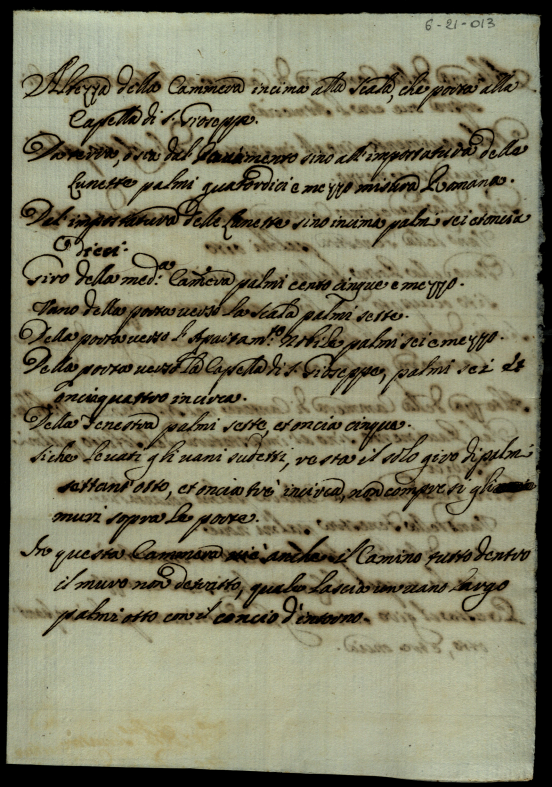 6-21-013
Altezza della Cammera incima alla Scala, che porta alla
Capella di S. Gioseppe.
Da terra, o sia dal Pavimento sino all'importatura delle
Lunette palmi quatordici e mezzo misura Romana.
Dal importatura delle Lunette sino incima palmi sei et oncia
dieci.
Giro della med.a Camera palmi cento cinque e mezzo.
Vano della porta verso la Scala palmi sette.
Della porta verso l'Apartam.to Nobile palmi sei e mezzo.
Della porta verso la Capella di S. Gioseppe, palmi sei et
oncia quattro incirca.
Della Fenestra palmi sette, et oncia cinque.
Siche levati gli vani sudetti, resta il solo giro di palmi
settant'otto, et oncia tre incirca, non compresi gli
muri sopra le porte.
In questa Cammera vi è anche il Camino tutto dentro
il muro non detratto, quale lascia un vano largo
palmi otto con il concio d'intorno.